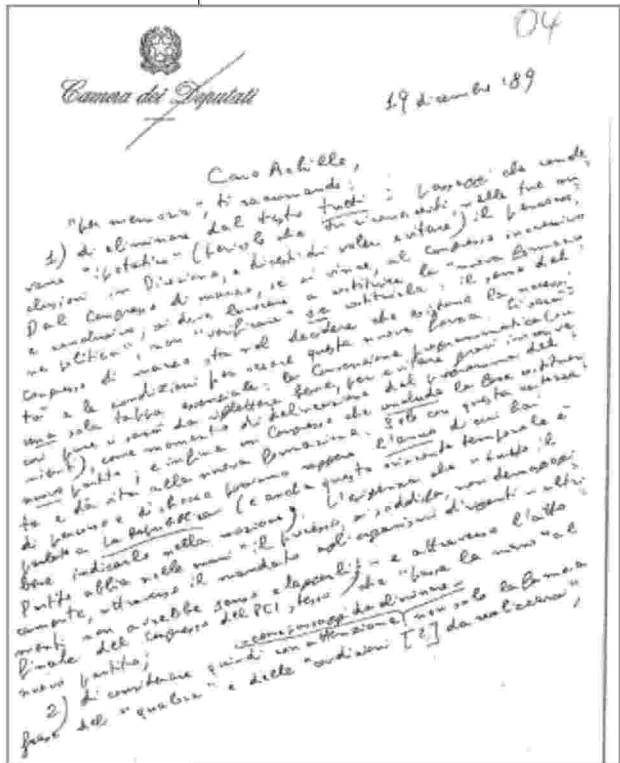 04
Camera dei Deputati
19 dicembre '89
Caro Achille,
"per memoria", ti raccomando:
1) di eliminare dal testo tutti i passaggi che rende
vano "ipotetico" (pericolo che tu riconoscesti nelle tue con
clusioni in Direzione, e dicesti di voler evitare) il percorso.
Dal Congresso di marzo, se si vince, al congresso successivo
e conclusivo, si deve lavorare a costituire la "nuova formazio
ne politica", non "verificare" se costituirla: il senso del
congresso di marzo sta nel decidere che esistono la necessi
tà e le condizioni per creare questa nuova forza. Ci sarà
una sola tappa essenziale: la Convenzione programmatica (su
cui forse ci sarà da riflettere bene, per evitare gravi inconve
nienti), come momento di definizione del programma del
nuovo partito; e infine un Congresso che conclude la fase costituen
te e dà vita alla nuova formazione. Solo con questa certezza
di percorso e di sbocco possiamo reggere l'anno di cui ha
parlato La Repubblica (e anche questo orizzonte temporale è
bene indicarlo nella mozione). L'esigenza che "tutto il
Partito abbia nelle mani" il processo, si soddisfa, non demagogi
camente, attraverso il mandato agli organismi dirigenti (altri
menti non avrebbe senso eleggerli) e attraverso l'atto
finale del Congresso del PCI, stesso, che "passa la mano" al
nuovo partito;
2) di considerare quindi con attenzione, come passaggi da eliminare, non solo la famosa
frase del "qualora" e delle "condizioni [?] da realizzarsi",